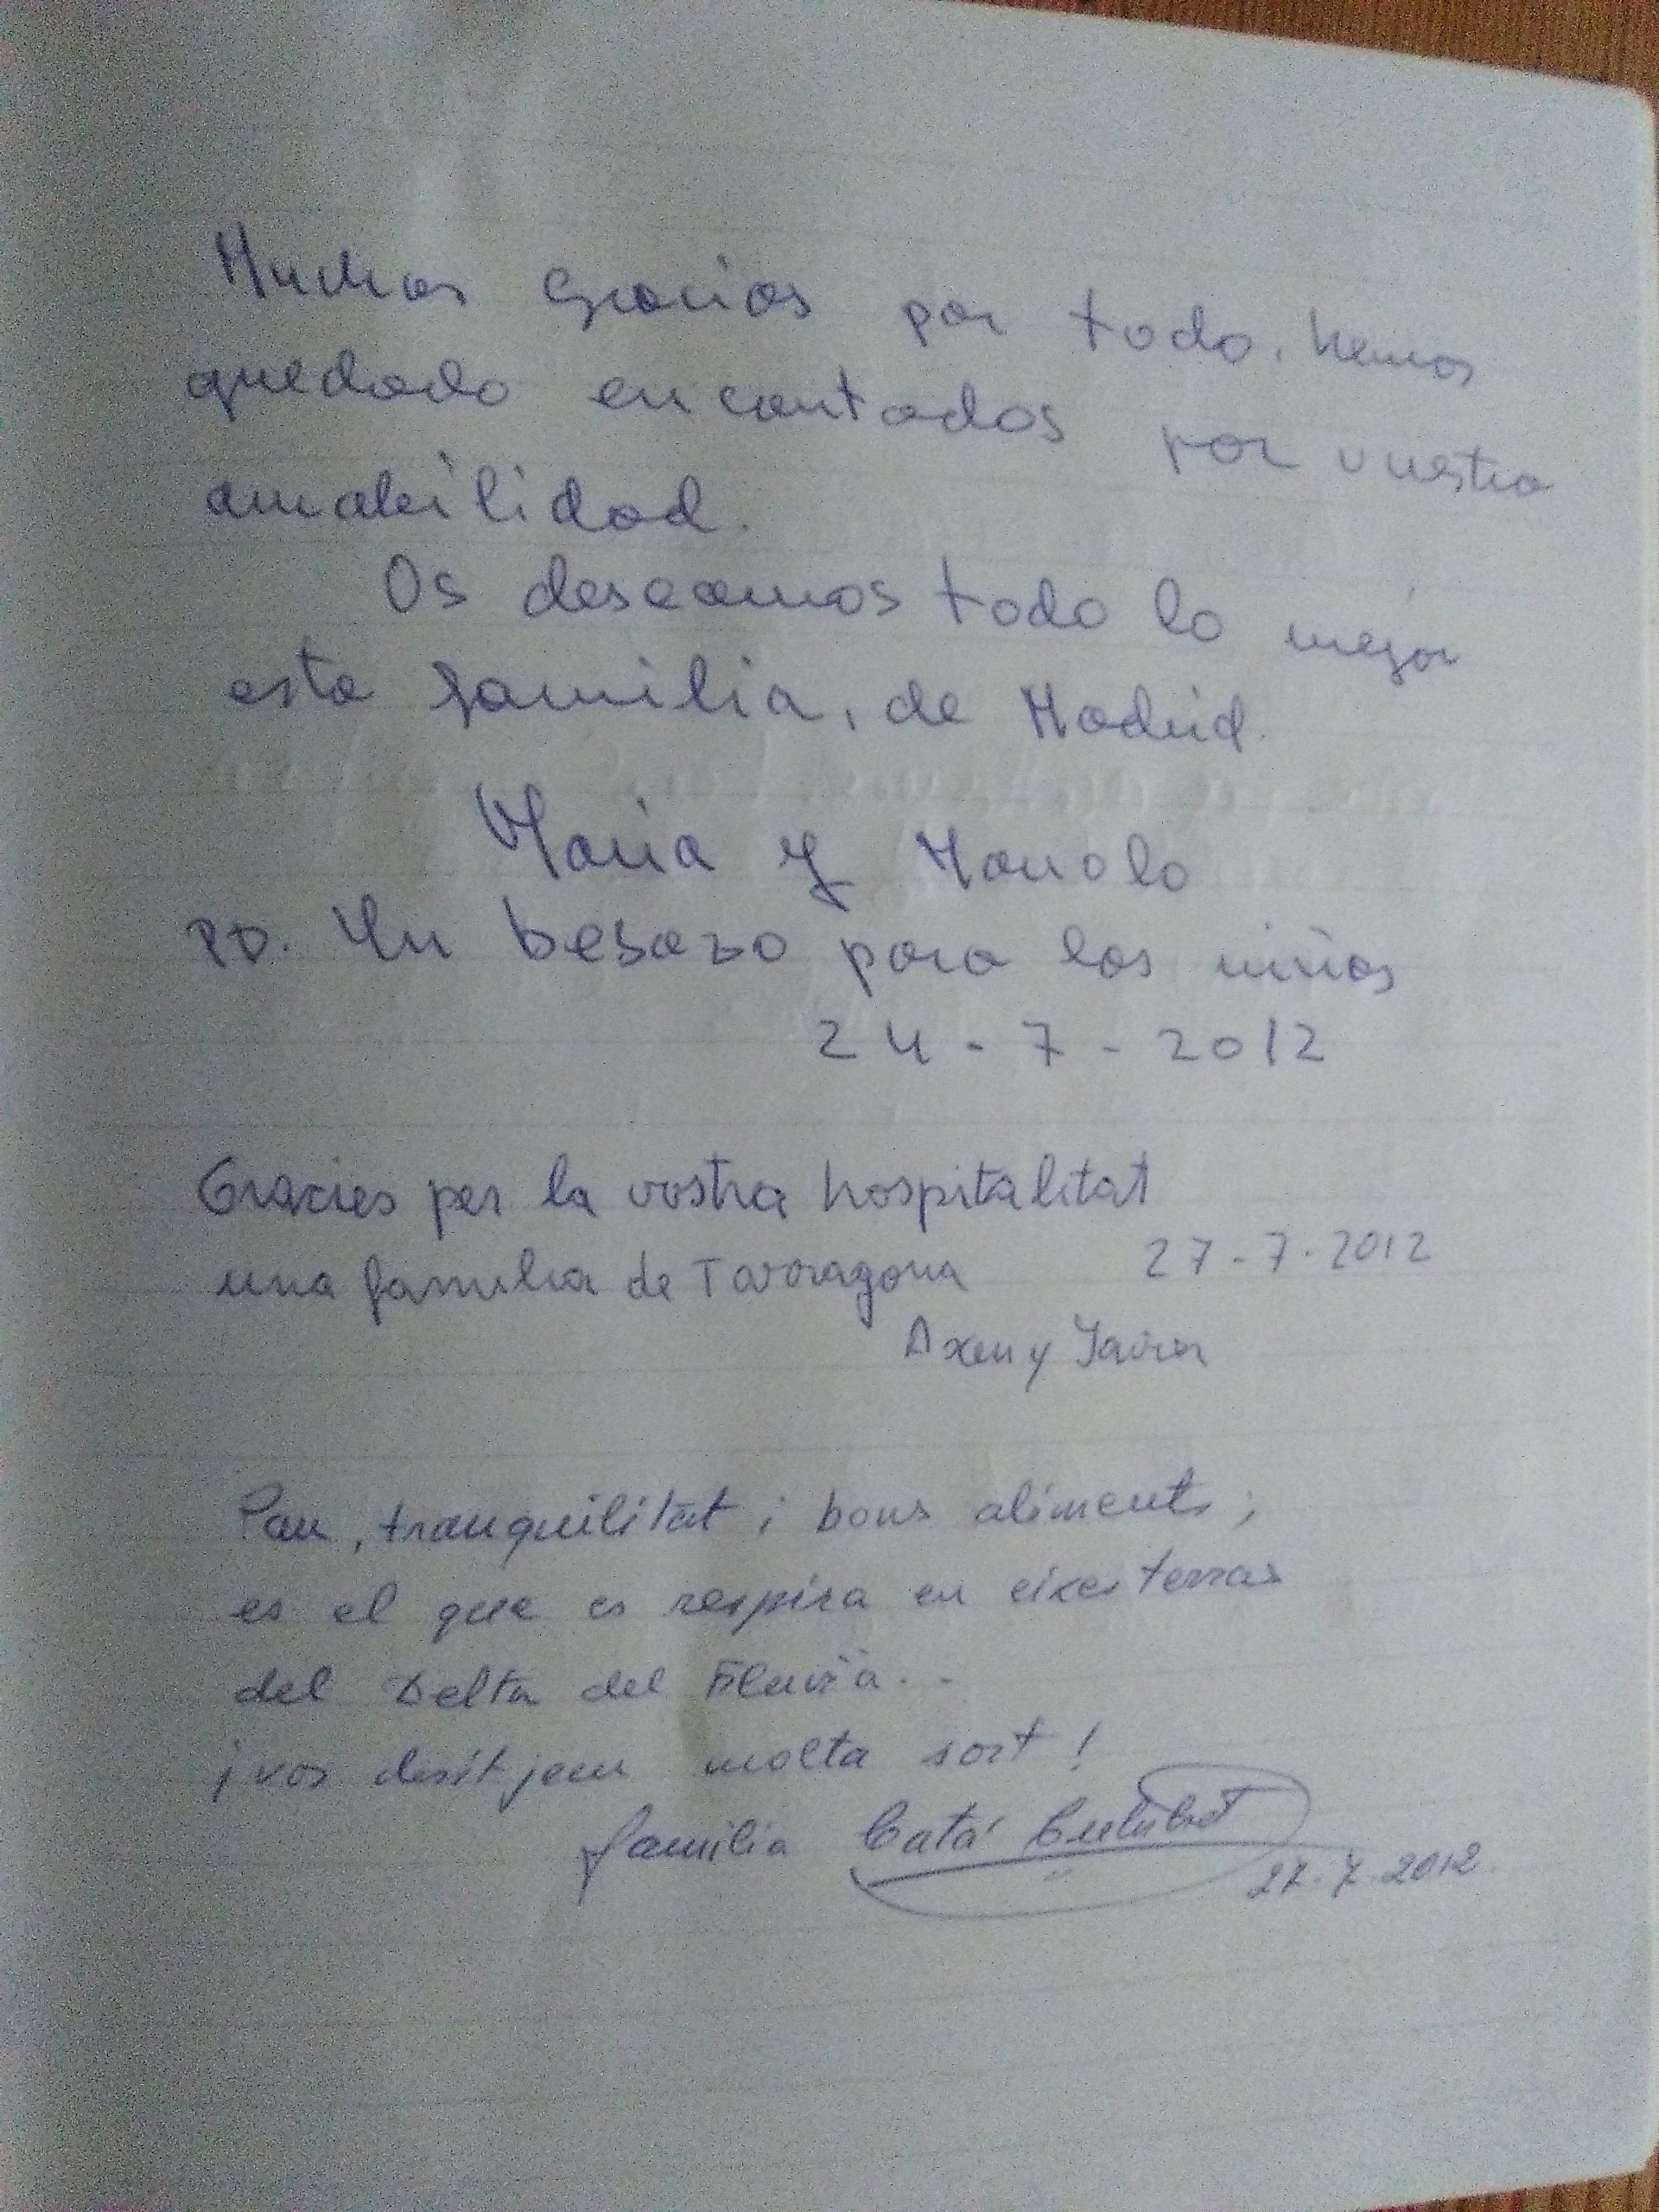 Muchas gracias por todo, hemos
quedado encantados por vuestra
amabilidad.
Os deseamos todo lo mejor
esta familia, de Madrid.
Maria y Manolo
PD. Un besazo para los niños
24-7-2012
Gracies per la vostra hospitalitat
una familia de Tarragona 27-7-2012
y Javier
Pau, tranquilitat i bons aliments,
es el que es respira en eixes terras
del Delta del Fluvià..
¡vos desitjem molta sort!
familia Catá
27-7-2012